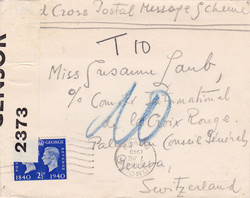 d Cross Postal Message Scheme
T 10
Miss Susanne Laub,
c/o Comité International
de la Croix Rouge.
Palais du Conseil Général,
Geneva,
Switzerland
10
CENSOR
2373
2½
1840 1940